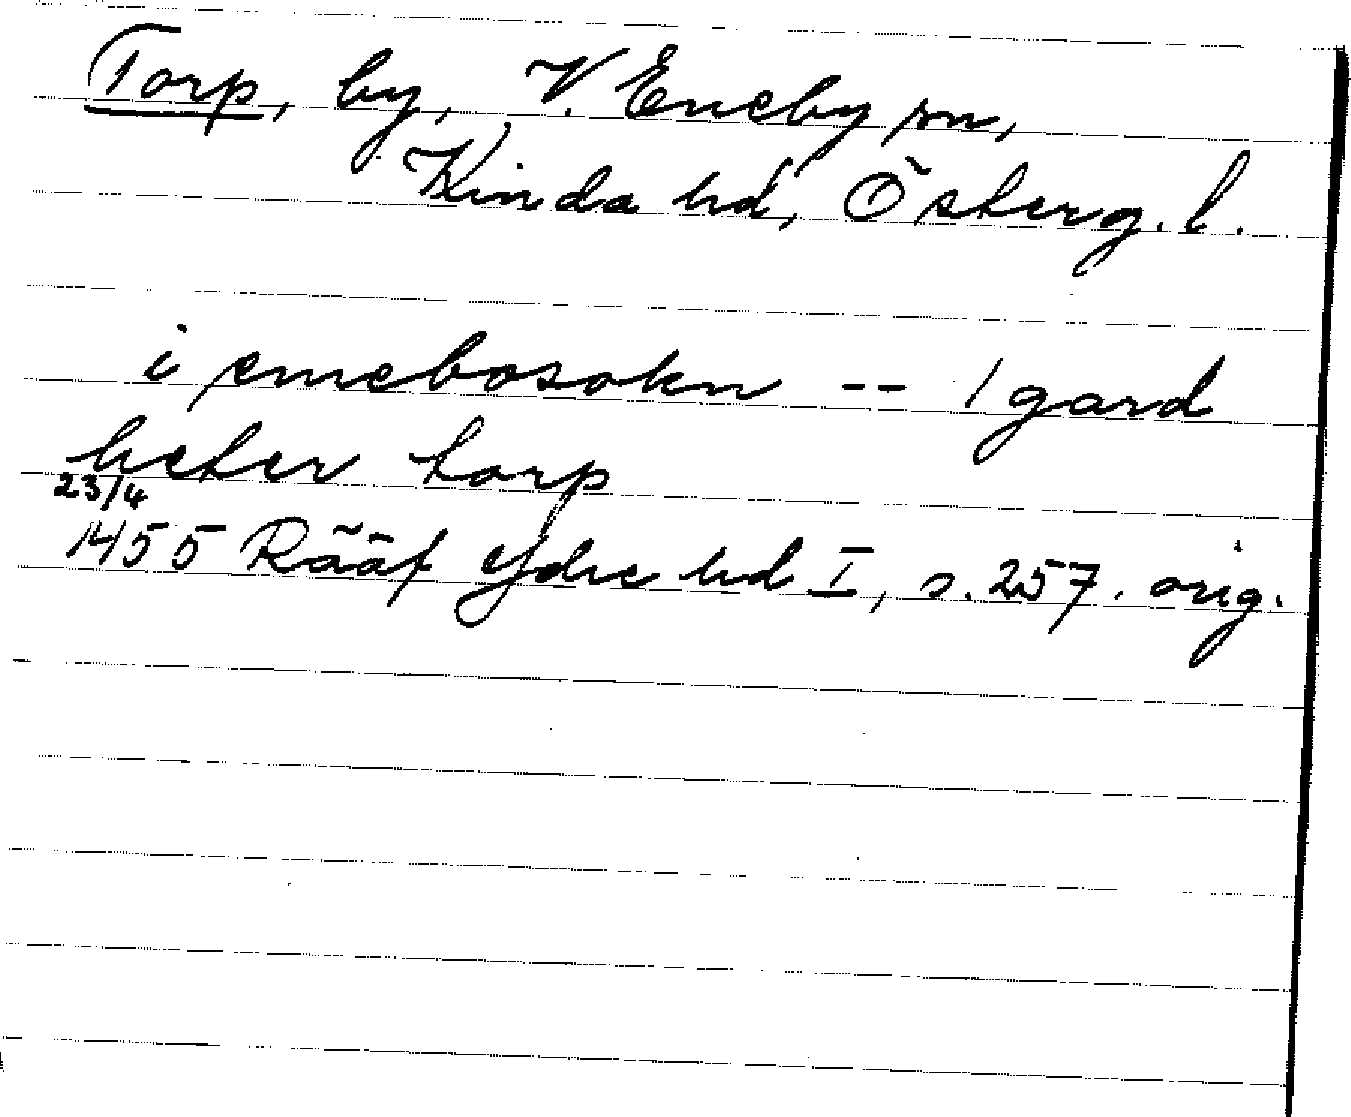 Torp, by, V. Eneby sn,
Kinda hd, Österg. l.
i enebosokn -- 1 gard
heter torp
23/4
1455 Rääf Ydre hd I, s. 257. orig.